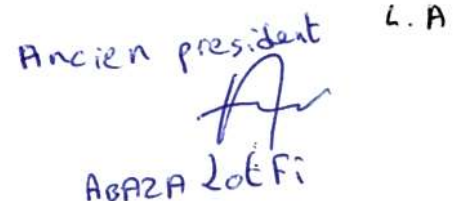 Ancien president
L. A
ABAZA Lotfi